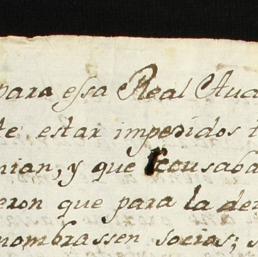 para essa Real Aud
te estar impedidos
nian, y que recusaba
eron que para la de
nombrassen socios; s